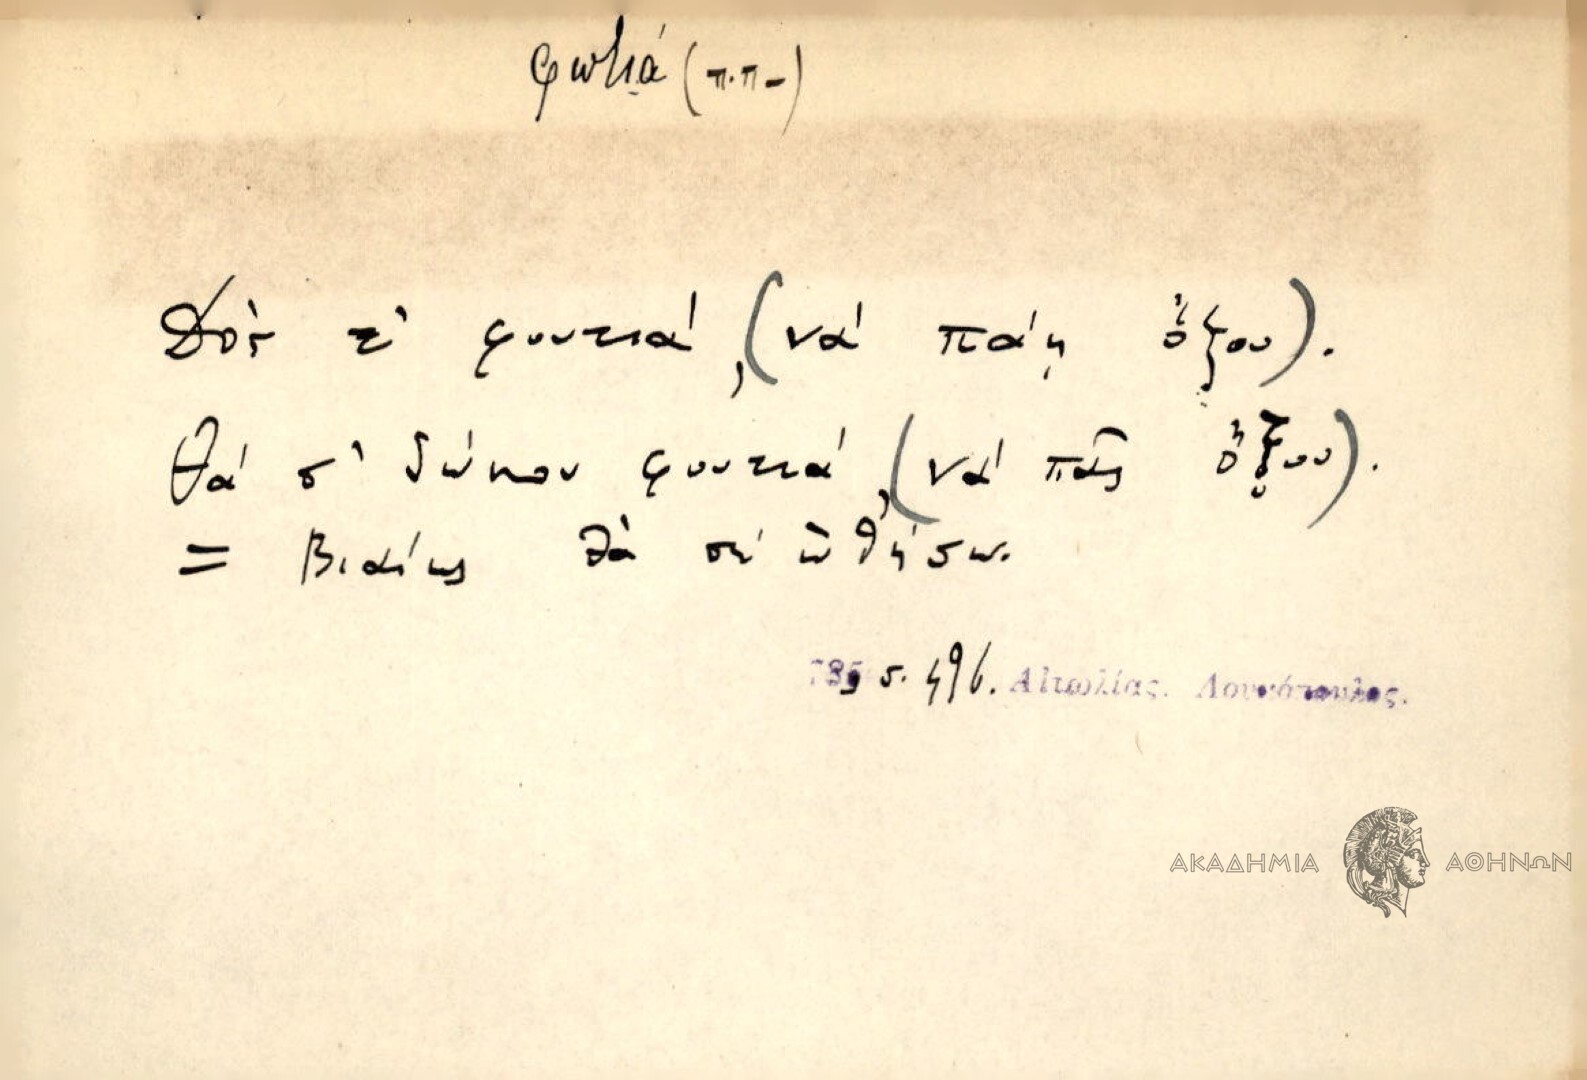 φωτιά (π.π-)
Δός τ' φουτιά, (νά πάῃ ὄξου).
θά σ' δώκου φουτιά, (νά πᾶς ὄξου).
= Βιαίως θά σέ ὠθήσω.
σ. 496. Αἰτωλίας. Λουκόπουλος.
ΑΚΑΔΗΜΙΑ ΑΘΗΝΩΝ